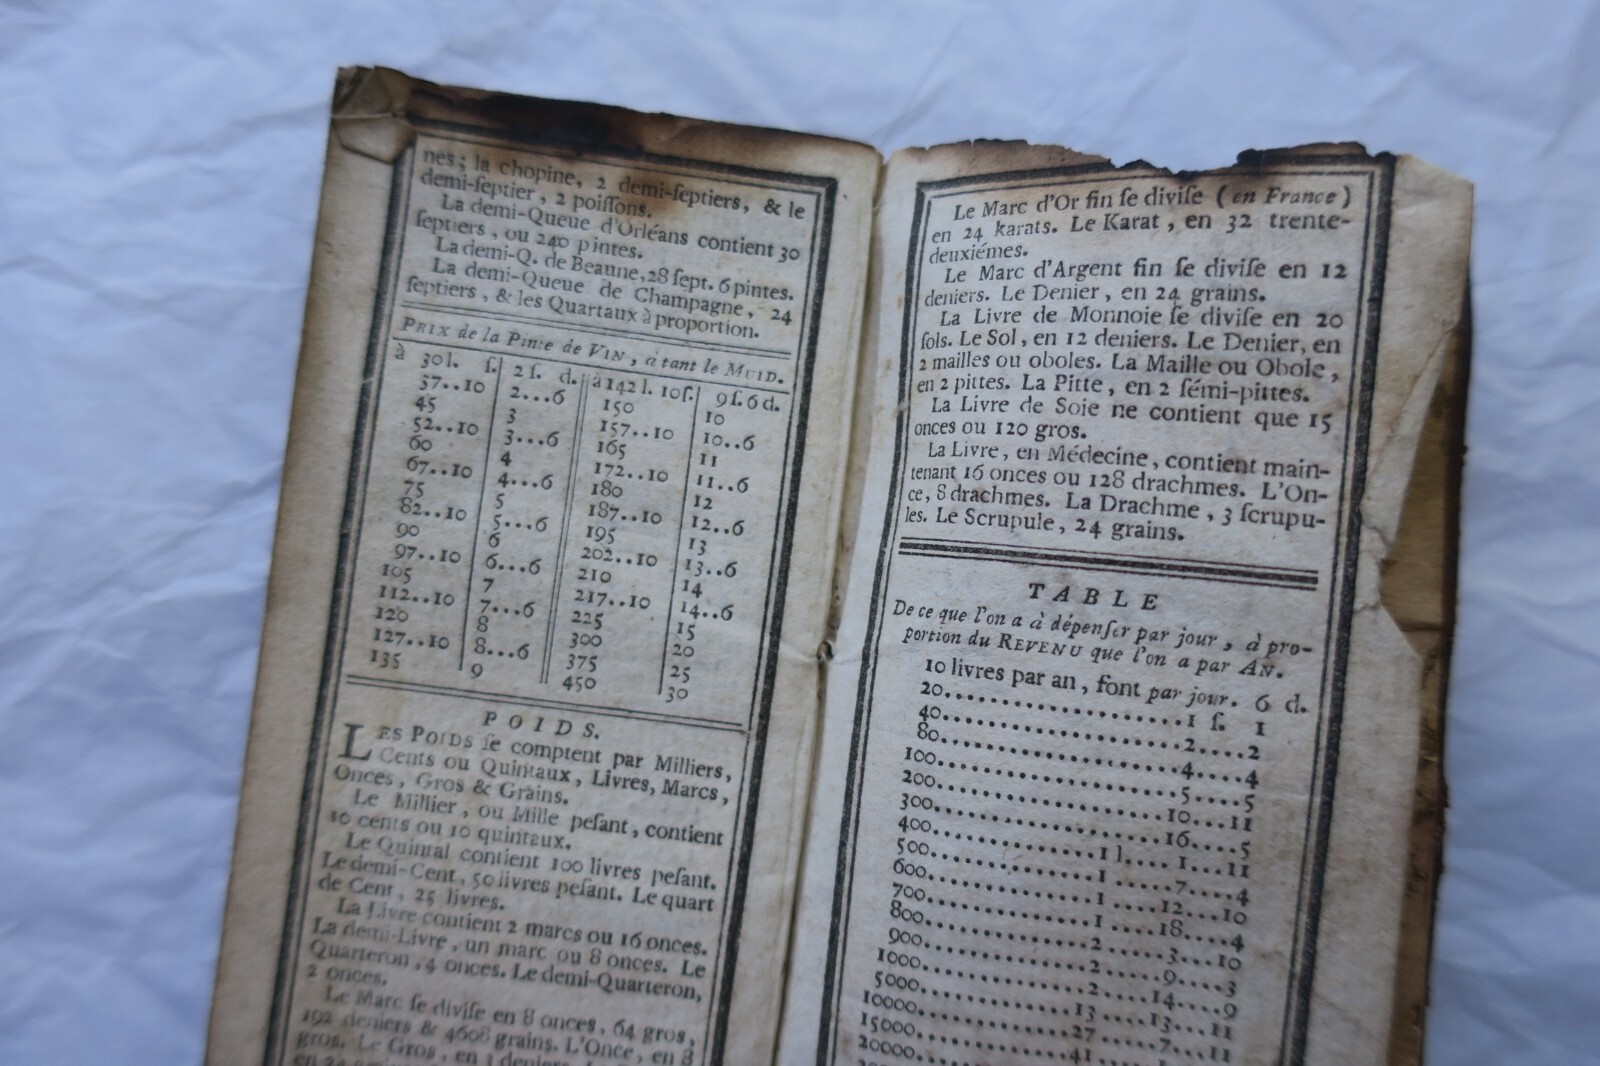 nes; la chopine, 2 demi-ſeptiers, & le
demi-ſeptier, 2 poiſſons.
La demi-Queue d'Orléans contient 30
ſeptiers, ou 240 pintes.
La demi-Q. de Beaune, 28 ſept. 6 pintes.
La demi-Queue de Champagne, 24
ſeptiers, & les Quartaux à proportion.
PRIX de la Pinte de VIN, à tant le MUID.
à 30 l. ſ. 2 ſ. d. à 142 l. 10 ſ. 9 ſ. 6 d.
37..10 2...6 150 10
45 3 157..10 10..6
52..10 3...6 165 11
60 4 172..10 11..6
67..10 4...6 180 12
75 5 187..10 12..6
82..10 5...6 195 13
90 6 202..10 13..6
97..10 6...6 210 14
105 7 217..10 14..6
112..10 7...6 225 15
120 8 300 20
127..10 8...6 375 25
135 9 450 30
POIDS.
LES POIDS ſe comptent par Milliers,
Cents ou Quintaux, Livres, Marcs,
Onces, Gros & Grains.
Le Millier, ou Mille peſant, contient
10 cents ou 10 quintaux.
Le Quintal contient 100 livres peſant.
Le demi-Cent, 50 livres peſant. Le quart
de Cent, 25 livres.
La Livre contient 2 marcs ou 16 onces.
La demi-Livre, un marc ou 8 onces. Le
Quarteron, 4 onces. Le demi-Quarteron,
2 onces.
Le Marc ſe diviſe en 8 onces, 64 gros,
192 deniers & 4608 grains. L'Once, en 8
gros. Le Gros, en 3 deniers.
Le Marc d'Or fin ſe diviſe (en France)
en 24 karats. Le Karat, en 32 trente-
deuxiémes.
Le Marc d'Argent fin ſe diviſe en 12
deniers. Le Denier, en 24 grains.
La Livre de Monnoie ſe diviſe en 20
ſols. Le Sol, en 12 deniers. Le Denier, en
2 mailles ou oboles. La Maille ou Obole,
en 2 pittes. La Pitte, en 2 ſémi-pittes.
La Livre de Soie ne contient que 15
onces ou 120 gros.
La Livre, en Médecine, contient main-
tenant 16 onces ou 128 drachmes. L'On-
ce, 8 drachmes. La Drachme, 3 ſcrupu-
les. Le Scrupule, 24 grains.
TABLE
De ce que l'on a à dépenſer par jour, à pro-
portion du REVENU que l'on a par AN.
10 livres par an, font par jour. 6 d.
20..................1 ſ. 1
40..................2....2
80..................4....4
100..................5....5
200..................10...11
300..................16....5
400.............1 l....1...11
500.............1.....7....4
600.............1....12...10
700.............1....18....4
800.............2.....3...10
900.............2.....9....3
1000.............2....14....9
5000............13....13...11
10000............27.....7...11
15000............41
20000